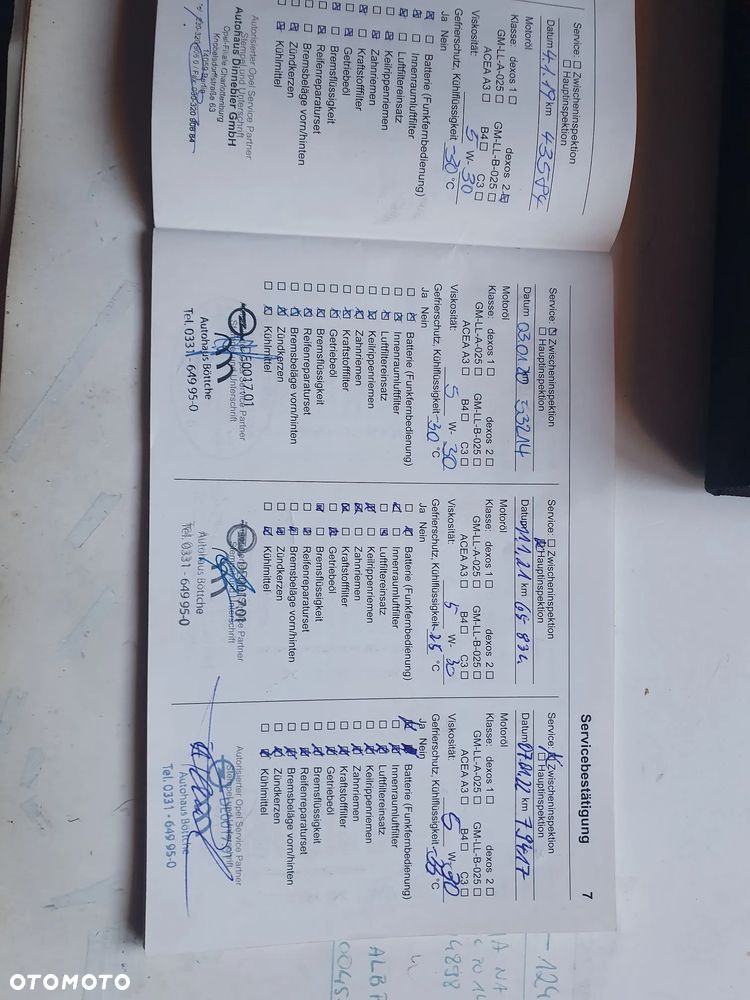 Service: □ Zwischeninspektion
□ Hauptinspektion
Datum 4.1.19 km 43584
Motoröl
Klasse: dexos 1 □ dexos 2 ☒
GM-LL-A-025 □ GM-LL-B-025 □
ACEA A3 □ B4 □ C3 □
Viskosität: 5 W- 30
Gefrierschutz, Kühlflüssigkeit -30 °C
Ja Nein
Batterie (Funkfernbedienung)
Innenraumluftfilter
Luftfiltereinsatz
Keilrippenriemen
Zahnriemen
Kraftstofffilter
Getriebeöl
Bremsflüssigkeit
Reifenreparaturset
Bremsbeläge vorn/hinten
Zündkerzen
Kühlmittel
Autorisierter Opel Service Partner
Stempel und Unterschrift
Autohaus Dinnebier GmbH
Opel-Filiale Charlottenburg
Knobelsdorffstraße 63
14059 Berlin
Servicebestätigung 7
Service: ☒ Zwischeninspektion
□ Hauptinspektion
Datum 03.01.20 53214
Motoröl
Klasse: dexos 1 □ dexos 2 □
GM-LL-A-025 □ GM-LL-B-025 □
ACEA A3 □ B4 □ C3 □
Viskosität: 5 W- 30
Gefrierschutz, Kühlflüssigkeit -30 °C
Ja Nein
Batterie (Funkfernbedienung)
Innenraumluftfilter
Luftfiltereinsatz
Keilrippenriemen
Zahnriemen
Kraftstofffilter
Getriebeöl
Bremsflüssigkeit
Reifenreparaturset
Bremsbeläge vorn/hinten
Zündkerzen
Kühlmittel
Service Partner
Unterschrift
Autohaus Böttche
Tel. 0331 - 649 95-0
Service: □ Zwischeninspektion
☒ Hauptinspektion
Datum 11.1.21 km
Motoröl
Klasse: dexos 1 □ dexos 2 □
GM-LL-A-025 □ GM-LL-B-025 □
ACEA A3 □ B4 □ C3 □
Viskosität: 5 W- 30
Gefrierschutz, Kühlflüssigkeit -25 °C
Ja Nein
Batterie (Funkfernbedienung)
Innenraumluftfilter
Luftfiltereinsatz
Keilrippenriemen
Zahnriemen
Kraftstofffilter
Getriebeöl
Bremsflüssigkeit
Reifenreparaturset
Bremsbeläge vorn/hinten
Zündkerzen
Kühlmittel
Service Partner
Autohaus Böttche
Tel. 0331 - 649 95-0
Service: ☒ Zwischeninspektion
□ Hauptinspektion
Datum 07.01.22 km 79417
Motoröl
Klasse: dexos 1 □ dexos 2 □
GM-LL-A-025 □ GM-LL-B-025 □
ACEA A3 □ B4 □ C3 □
Viskosität: 5 W- 30
Gefrierschutz, Kühlflüssigkeit °C
Ja Nein
Batterie (Funkfernbedienung)
Innenraumluftfilter
Luftfiltereinsatz
Keilrippenriemen
Zahnriemen
Kraftstofffilter
Getriebeöl
Bremsflüssigkeit
Reifenreparaturset
Bremsbeläge vorn/hinten
Zündkerzen
Kühlmittel
Autorisierter Opel Service Partner
Stempel und Unterschrift
Autohaus Böttche
Tel. 0331 - 649 95-0
OTOMOTO